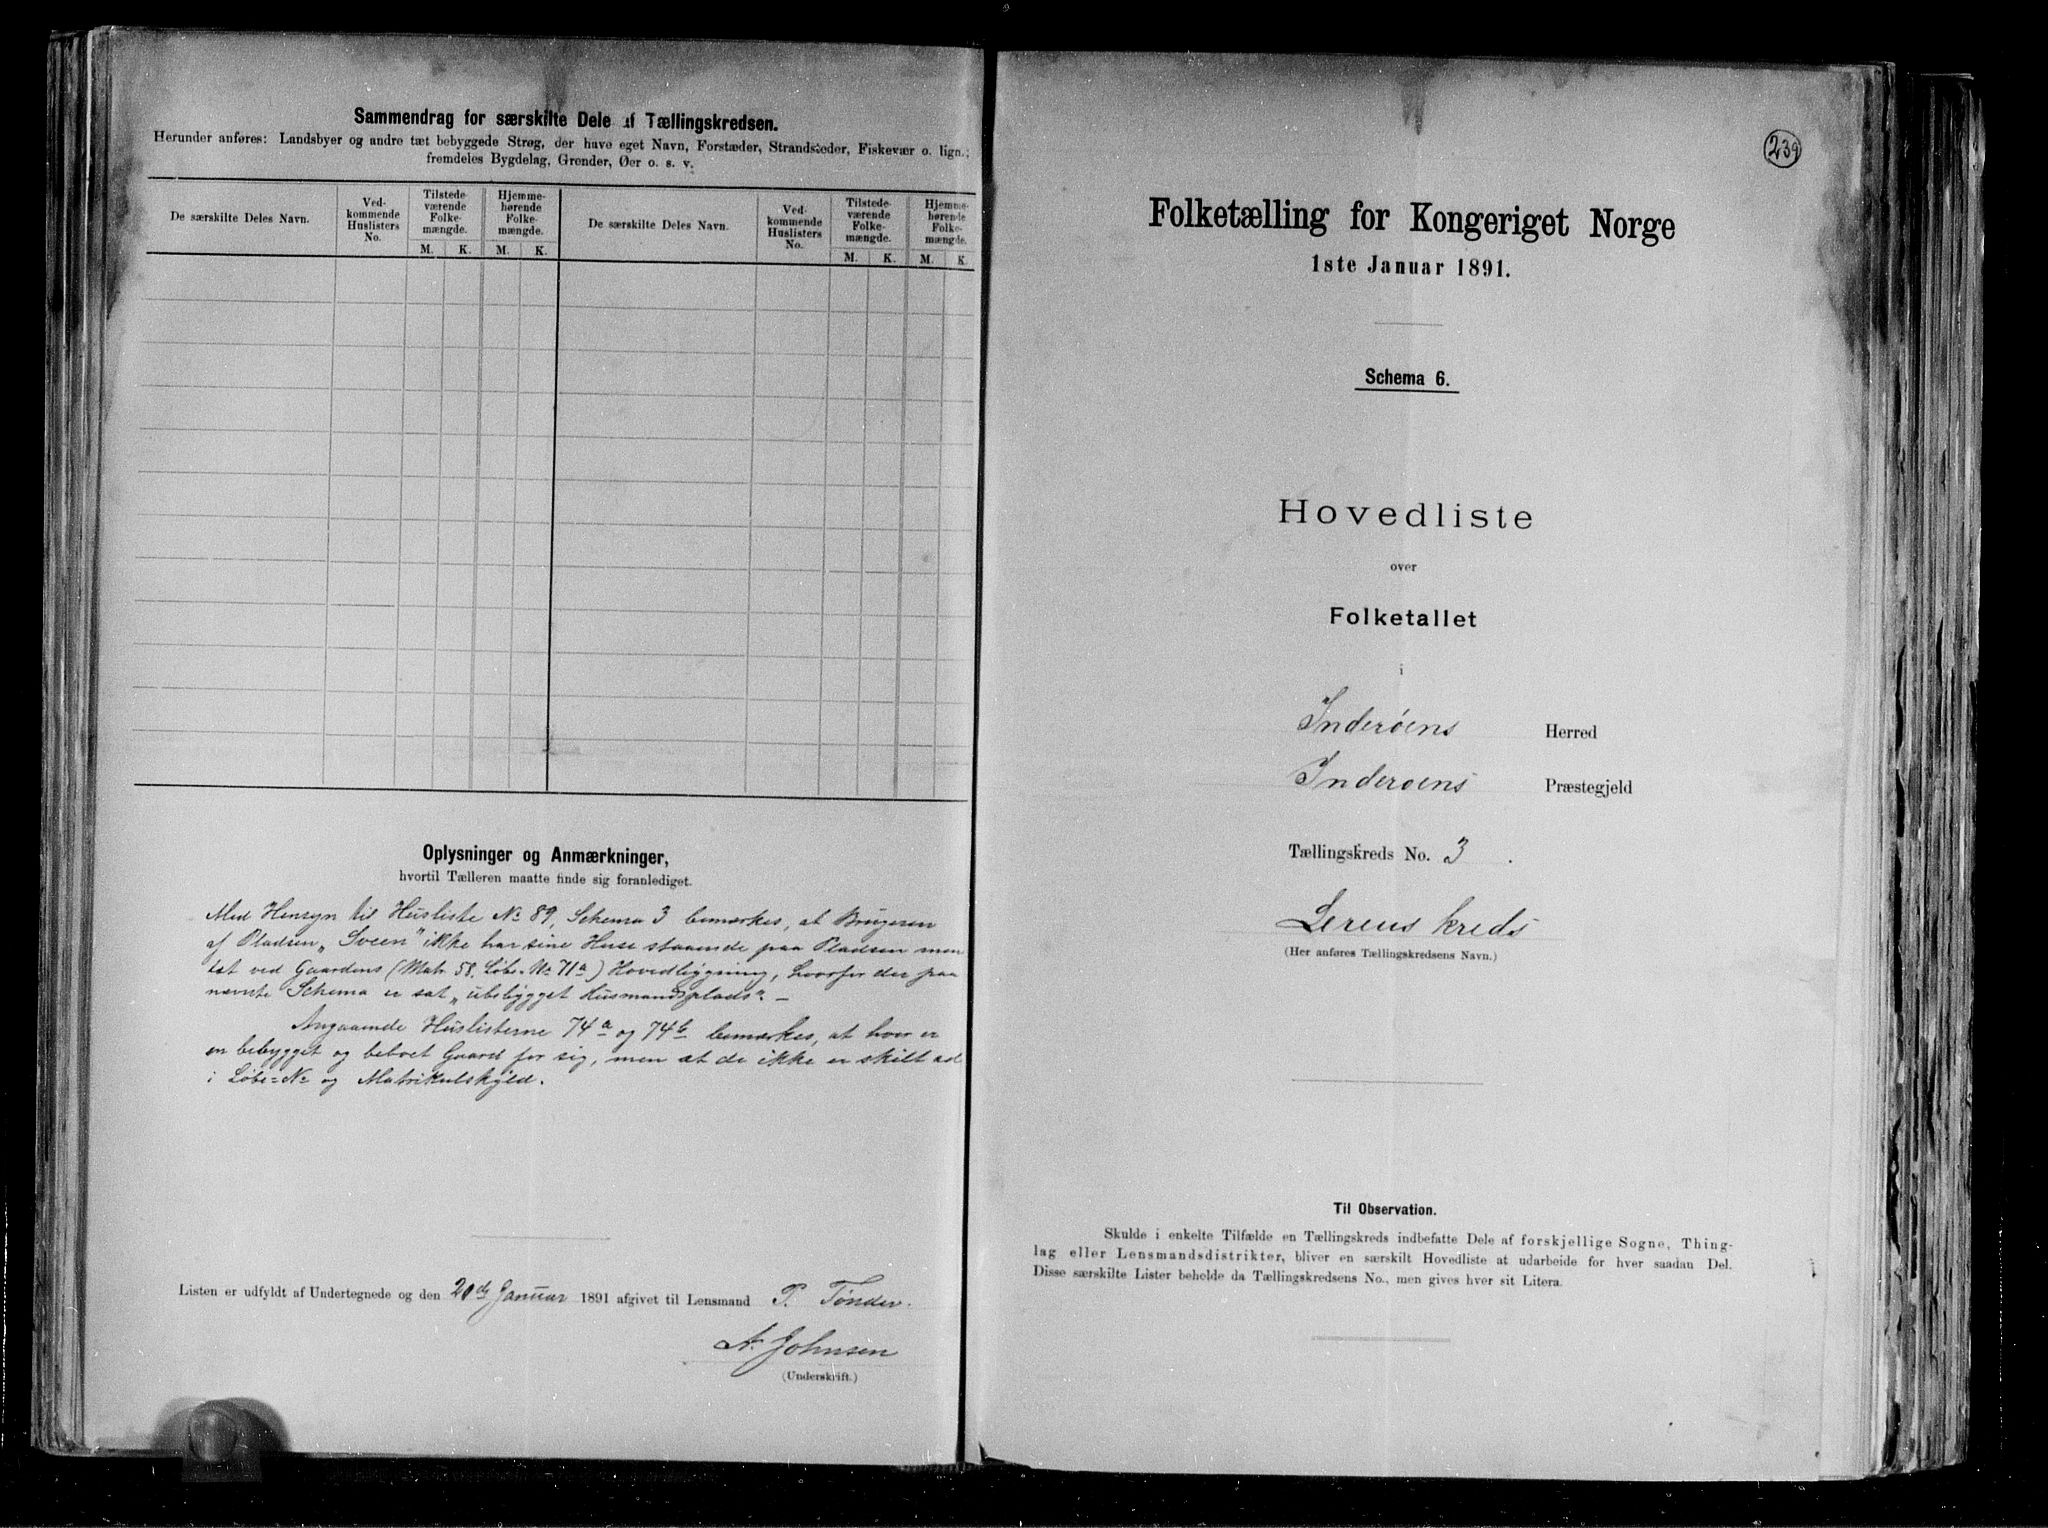 Sammendrag for særskilte Dele af Tællingskredsen.
Herunder anføres: Landsbyer og andre tæt bebyggede Strøg, der have eget Navn, Forstæder, Strandsteder, Fiskevær o. lign.;
fremdeles Bygdelag, Grender, Øer o. s. v.
De særskilte Deles Navn.
Ved-
kommende
Huslisters
No.
Tilstede-
værende
Folke-
mængde.
M. K.
Hjemme-
hørende
Folke-
mængde.
M. K.
De særskilte Deles Navn.
Ved-
kommende
Huslisters
No.
Tilstede-
værende
Folke-
mængde.
M. K.
Hjemme-
hørende
Folke-
mængde.
M. K.
Oplysninger og Anmærkninger,
hvortil Tælleren maatte finde sig foranlediget.
Med Hensyn til Husliste No 89, Schema 3 bemærkes, at Brugeren
af Pladsen „Sveen" ikke har sine Huse staaende paa Pladsen men
tæt ved Gaardens (Matr. 58, Løbe-No 71a) Hovedbygning, hvorfor der paa
nævnte Schema er sat „ubebygget Husmandsplads". —
Angaaende Huslisterne 74a og 74b bemærkes, at hver er
en bebygget og beboet Gaard for sig, men at de ikke er skilt ad
i Løbe-No og Matrikulskyld.
Listen er udfyldt af Undertegnede og den 20de Januar 1891 afgivet til Lensmand P. Tønder.
A. Johnsen
(Underskrift.)
239
Folketælling for Kongeriget Norge
1ste Januar 1891.
Schema 6.
Hovedliste
over
Folketallet
i
Inderøens Herred
Inderøens Præstegjeld
Tællingskreds No. 3.
Lerens kreds
(Her anføres Tællingskredsens Navn.)
Til Observation.
Skulde i enkelte Tilfælde en Tællingskreds indbefatte Dele af forskjellige Sogne, Thing-
lag eller Lensmandsdistrikter, bliver en særskilt Hovedliste at udarbeide for hver saadan Del.
Disse særskilte Lister beholde da Tællingskredsens No., men gives hver sit Litera.